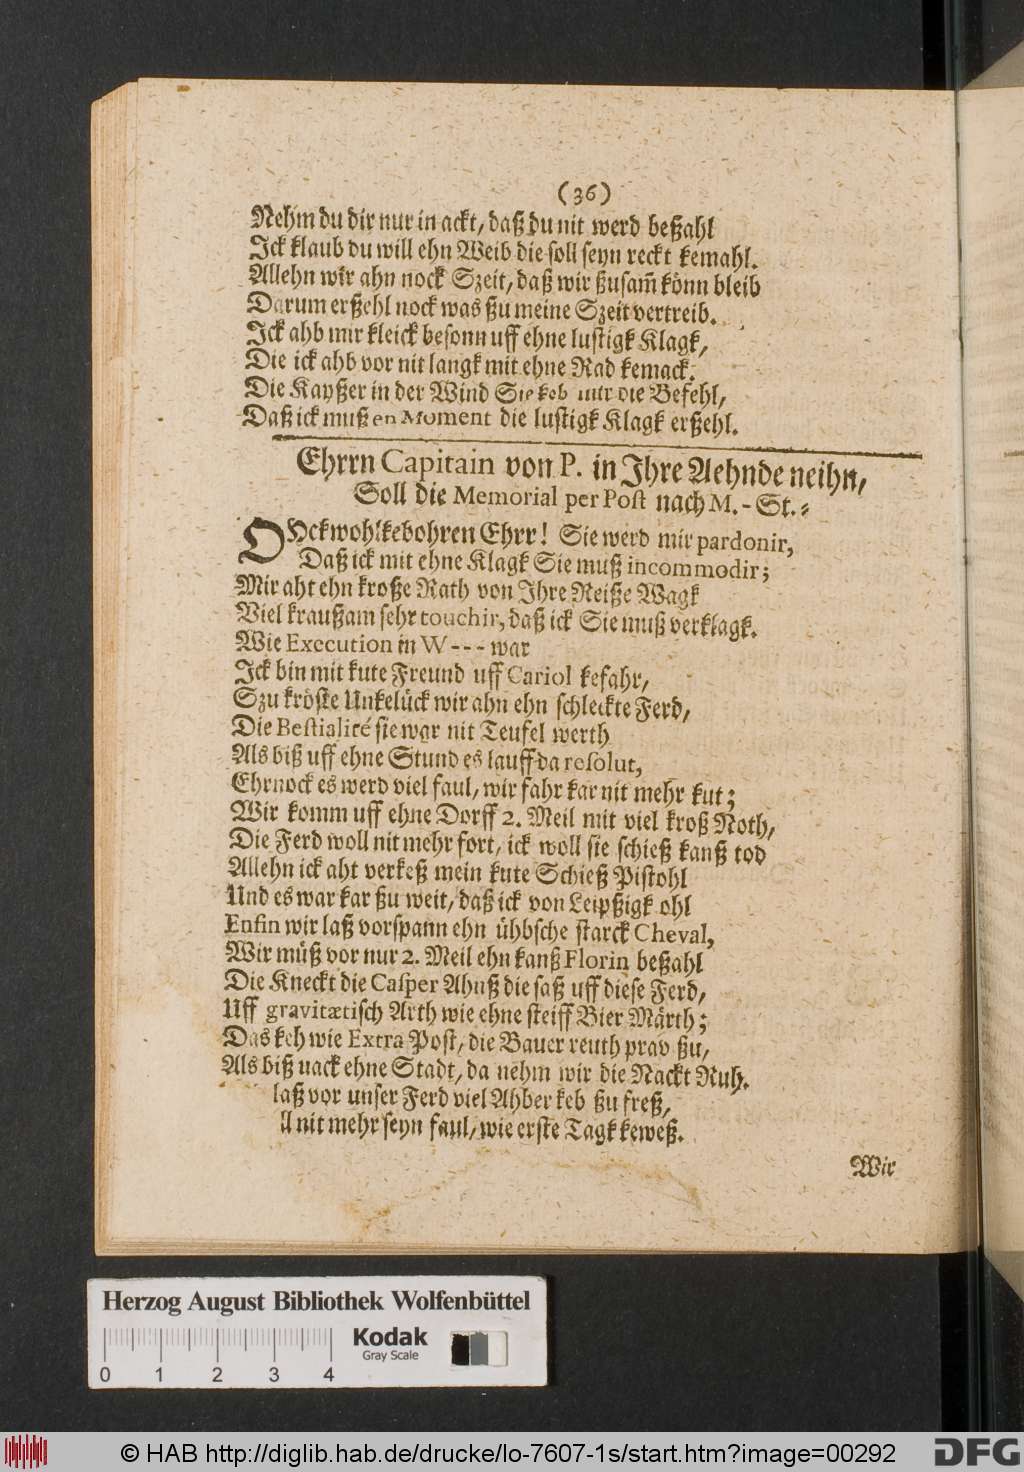 (36)
Nehm du dir nur in ackt, daß du nit werd beßahl
Ick klaub du will ehn Weib die soll seyn reckt kemahl.
Allehn wir ahn nock Szeit, daß wir ßusam̃ könn bleib
Darum erßehl nock was ßu meine Szeit vertreib.
Ick ahb mir kleick besonn uff ehne lustigk Klagk,
Die ick ahb vor nit langk mit ehne Rad kemack.
Die Kayßer in der Wind Sie keb mir die Befehl,
Daß ick muß en Moment die lustigk Klagk erßehl.
Ehrrn Capitain von P. in Ihre Aehnde neihn,
Soll die Memorial per Post nach M. - St. -
OHck wohlkebohren Ehrr! Sie werd mir pardonir,
Daß ick mit ehne Klagk Sie muß incommodir;
Mir aht ehn kroße Rath von Ihre Reiße Wagk
Viel kraußam sehr touchir, daß ick Sie muß verklagk.
Wie Execution in W - - - war
Ick bin mit kute Freund uff Cariol kefahr,
Szu kröste Unkelück wir ahn ehn schleckte Ferd,
Die Bestialité sie war nit Teufel werth
Als biß uff ehne Stund es lauff da resolut,
Ehrnock es werd viel faul, wir fahr kar nit mehr kut;
Wir komm uff ehne Dorff 2. Meil mit viel kroß Noth,
Die Ferd woll nit mehr fort, ick woll sie schieß kanß tod
Allehn ick aht verkeß mein kute Schieß Pistohl
Und es war kar ßu weit, daß ick von Leipßigk ohl
Enfin wir laß vorspann ehn ühbsche starck Cheval,
Wir müß vor nur 2. Meil ehn kanß Florin beßahl
Die Kneckt die Casper Ahnß die saß uff diese Ferd,
Uff gravitætisch Arth wie ehne steiff Bier Märth;
Das keh wie Extra Post, die Bauer reuth prav ßu,
Als biß nack ehne Stadt, da nehm wir die Nackt Ruh.
laß vor unser Ferd viel Ahber keb ßu freß,
nit mehr seyn faul, wie erste Tagk keweß.
Wir
Herzog August Bibliothek Wolfenbüttel
Kodak
Gray Scale
0 1 2 3 4
© HAB http://diglib.hab.de/drucke/lo-7607-1s/start.htm?image=00292
DFG